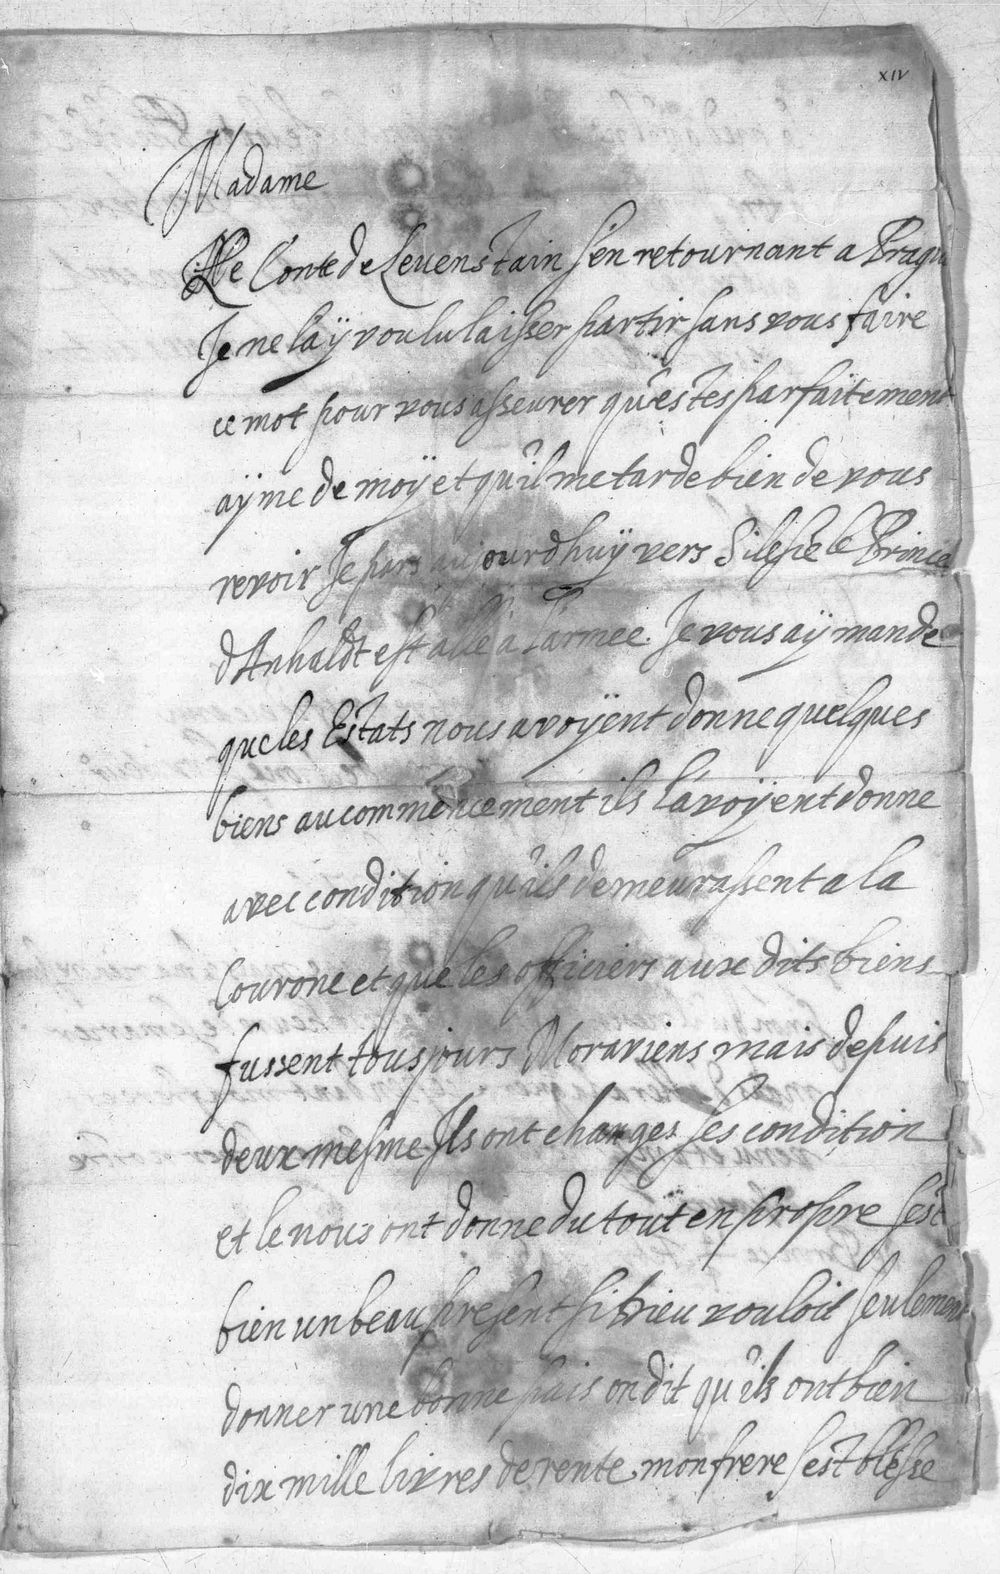 XIV
Madame
Le Conte de Levenstain s'en retournant a Prague
Je ne l'aÿ voulu laisser partir sans vous faire
ce mot pour vous asseurer qu'estes parfaitement
aÿme de moÿ et qu'il me tarde bien de vous
revoir Je pars aujourdhuÿ vers Silesie le Prince
d'Anhaldt est allé a l'armee. Je vous aÿ mande
que les Estats nous avoÿent donne quelques
biens au commencement ils l'avoÿent donne
avec condition qu'ils demeurassent a la
Courone et que les officiers aux dits biens
fussent tousjours Moraviens mais depuis
deux mesme Ils ont changes ses condition
et le nous ont donne du tout en propre s'est
bien un beau present si Dieu vouloit seulement
donner une bonne pais on dit qu'ils ont bien
dix mille livres de rente. mon frere s'est blesse